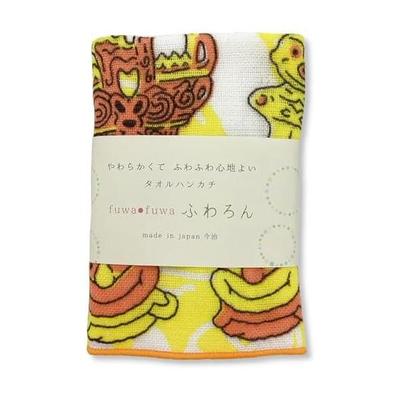 やわらかくて ふわふわ心地よい
タオルハンカチ
fuwa●fuwa ふわろん
made in japan 今治